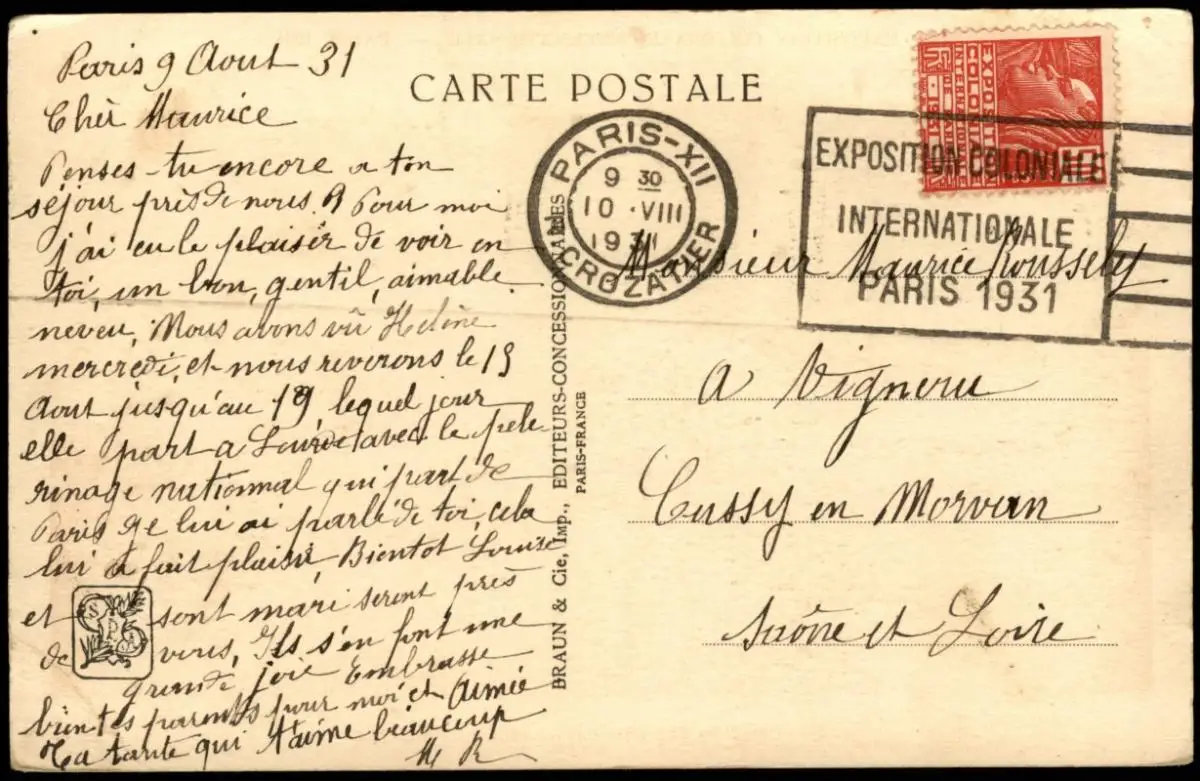 Paris 9 Aout 31
Cher Maurice
Penses-tu encore a ton
séjour près de nous ? Pour moi
j'ai eu le plaisir de voir en
toi, un bon, gentil, aimable
neveu, Nous avons vû Helène
mercredi, et nous reverons le 15
Aout jusqu'au 19, lequel jour
elle part a Lourde avec le pele-
rinage nationnal qui part de
Paris je lui ai parlé de toi, cela
lui a fait plaisir, Bientot Louise
et sont mari seront près
de vous, Ils s'en font une
grande joie Embrasse
bien tes parents pour moi et Aimée
Ta tante qui t'aime beaucoup
M R
SPA
CARTE POSTALE
BRAUN & Cie, Imp., EDITEURS-CONCESSIONNAIRES
PARIS-FRANCE
PARIS-XII
9 30
10 · VIII
1931
R. CROZATIER
EXPOSITION COLONIALE
INTERNATIONALE
PARIS 1931
EXPOSITION
COLONIALE
INTERNATIONALE
DE PARIS
1931
Monsieur Maurice Roussely
A Vigneru
Cussy en Morvan
Saône et Loire